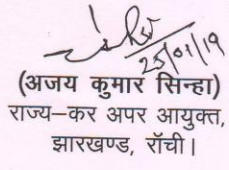 25/01/19
(अजय कुमार सिन्हा)
राज्य–कर अपर आयुक्त,
झारखण्ड, राँची।